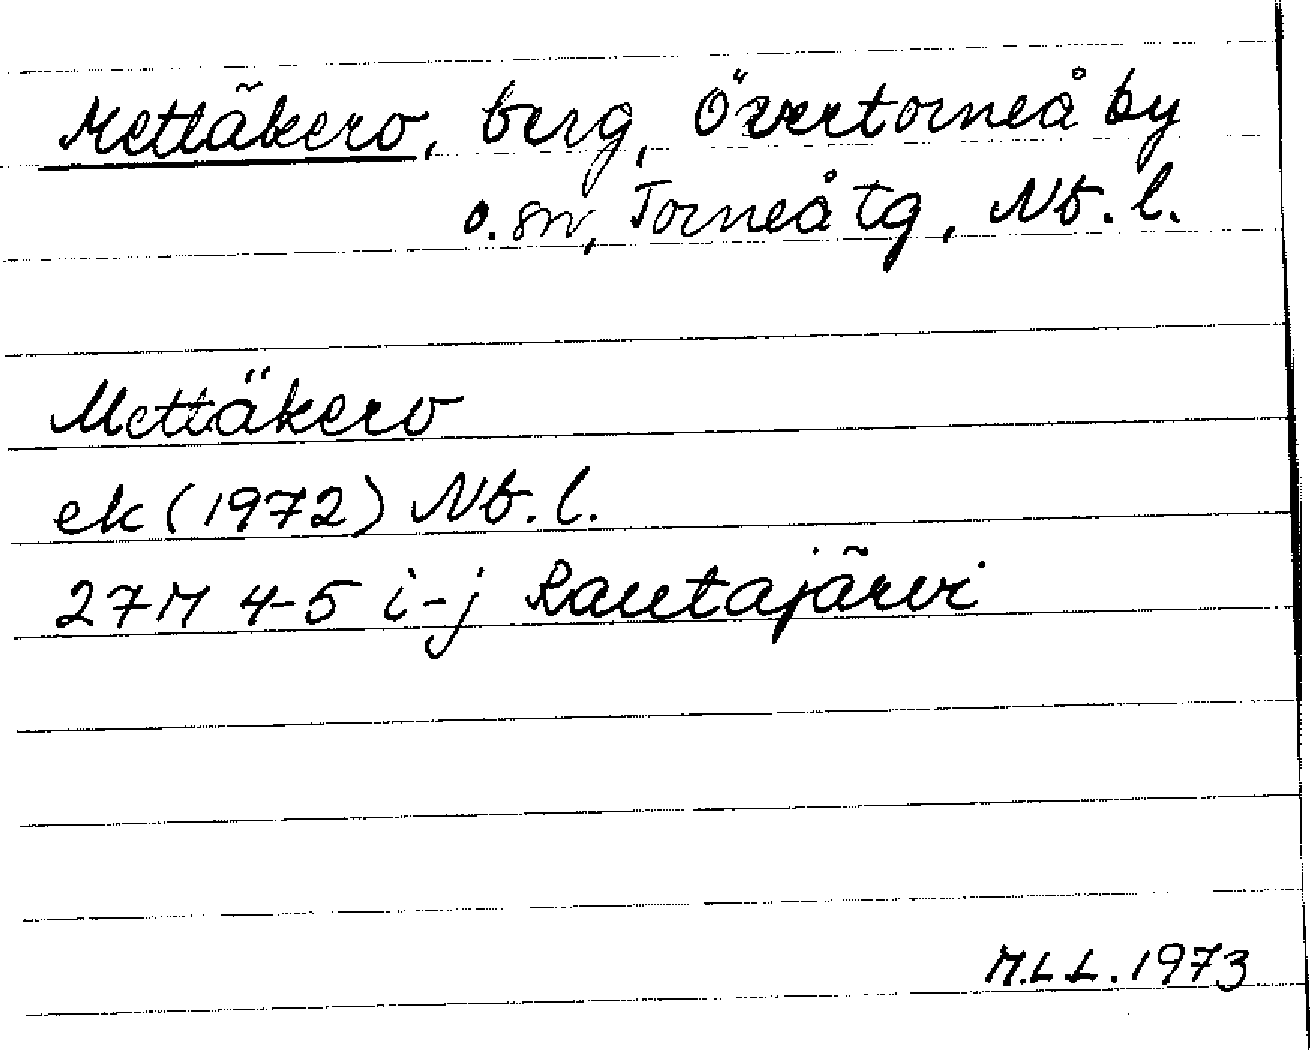 Mettäkero, berg, Övertorneå by
o. sn, Torneå tg, Nb. l.
Mettäkero
ek (1972) Nb. l.
27M 4-5 i-j Rautajärvi
M.L L. 1973